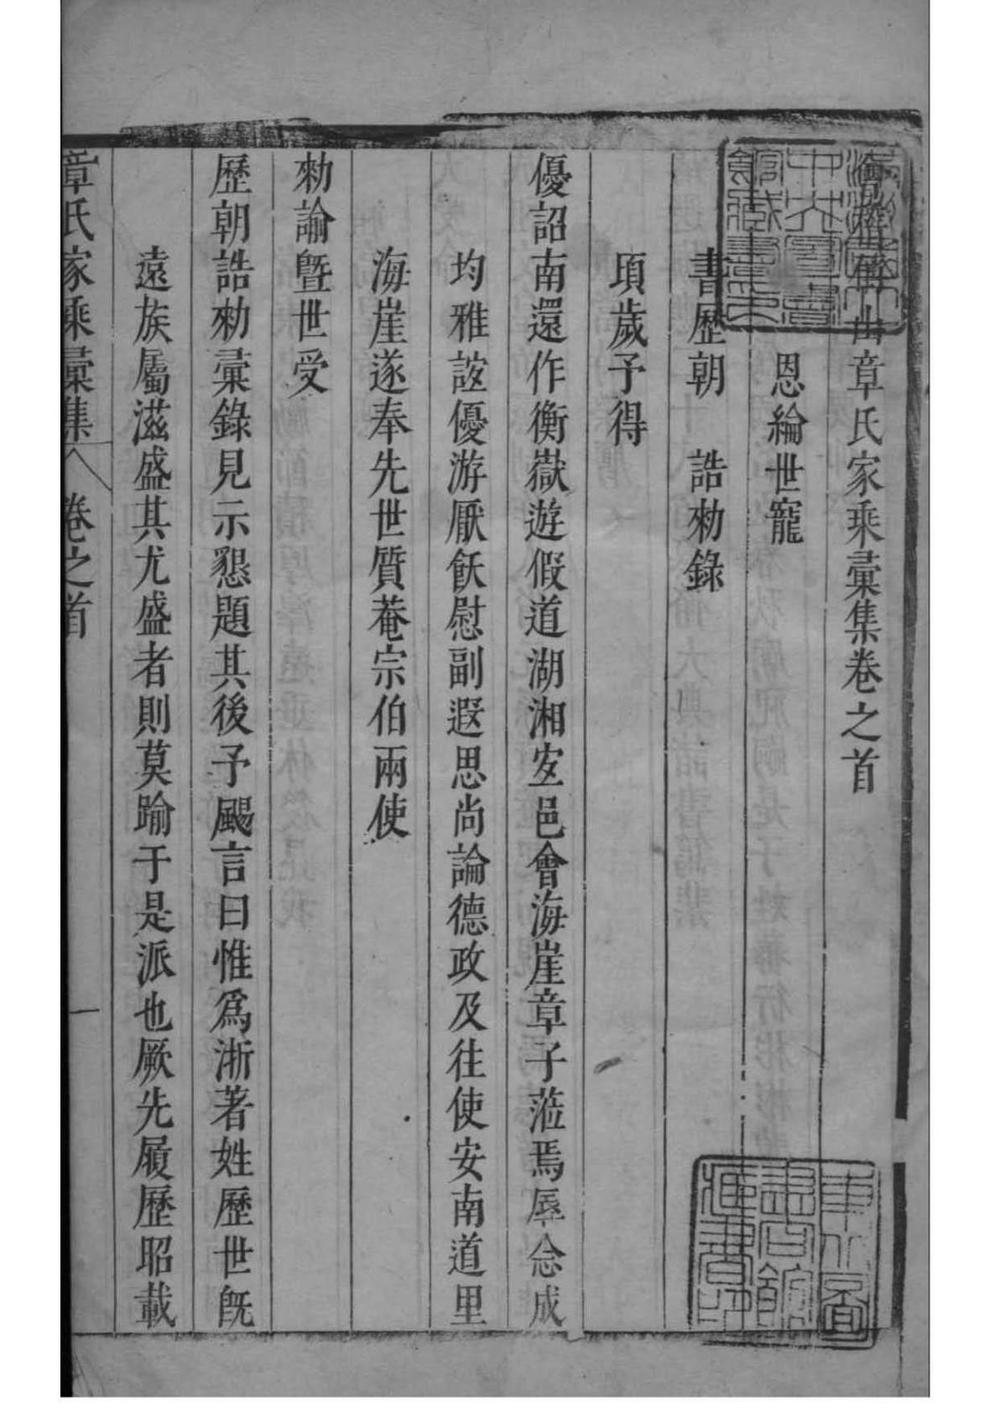 山章氏家乘彙集卷之首
恩綸世寵
書歷朝　誥勑錄
項歲予得
優詔南還作衡嶽遊假道湖湘安邑會海崖章子蒞焉辱念成
均雅誼優游厭飫慰副遐思尚論德政及往使安南道里
海崖遂奉先世質菴宗伯兩使
勑諭暨世受
歷朝誥勑彙錄見示懇題其後予颺言曰惟爲浙著姓歷世旣
遠族屬滋盛其尤盛者則莫踰于是派也厥先履歷昭載
章氏家乘彙集　卷之首　一